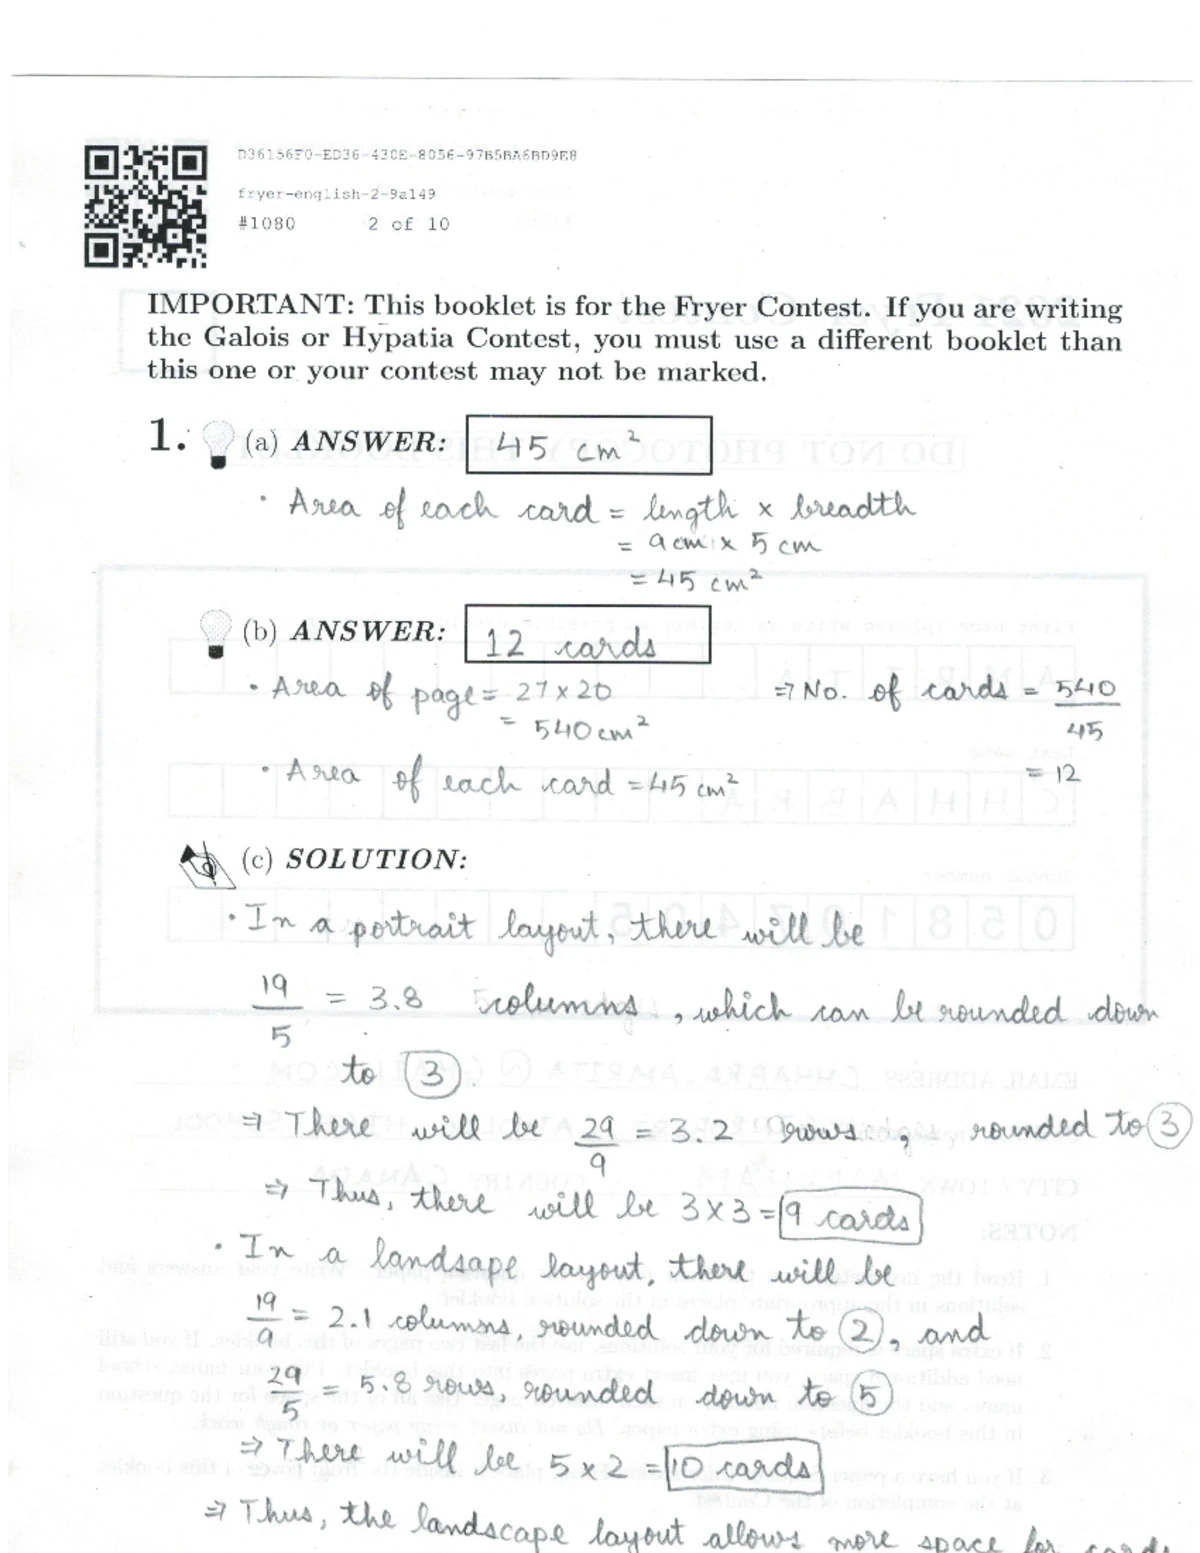 D36156F0-ED36-430E-8056-97B5BA6BD9E8
fryer-english-2-9a149
#1080 2 of 10
IMPORTANT: This booklet is for the Fryer Contest. If you are writing
the Galois or Hypatia Contest, you must use a different booklet than
this one or your contest may not be marked.
1. (a) ANSWER: 45 cm²
• Area of each card = length x breadth
= 9 cm x 5 cm
= 45 cm²
(b) ANSWER: 12 cards
• Area of page = 27 x 20 ⇒ No. of cards = 540/45
= 540 cm²
• Area of each card = 45 cm² = 12
(c) SOLUTION:
• In a portrait layout, there will be
19/5 = 3.8 columns, which can be rounded down
to 3.
⇒ There will be 29/9 = 3.2 rows, rounded to 3
⇒ Thus, there will be 3x3 = 9 cards
• In a landsape layout, there will be
19/9 = 2.1 columns, rounded down to 2, and
29/5 = 5.8 rows, rounded down to 5
⇒ There will be 5 x 2 = 10 cards
⇒ Thus, the landscape layout allows more space for cards